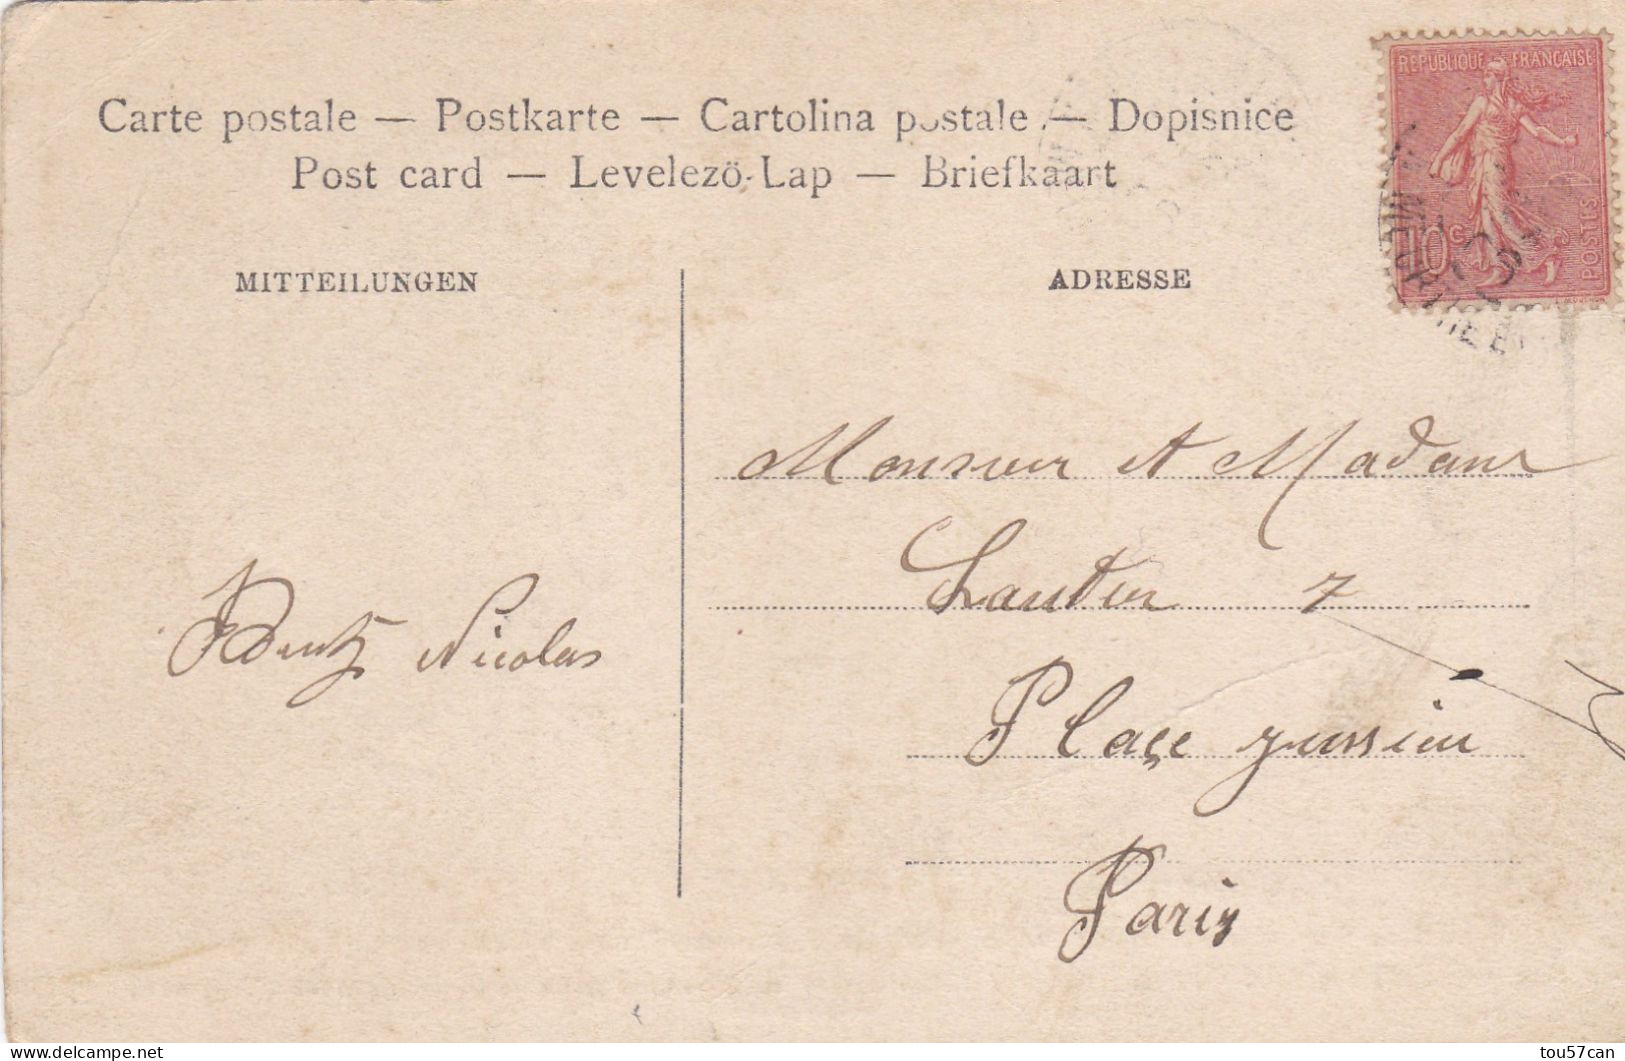 Carte postale — Postkarte — Cartolina postale — Dopisnice
Post card — Levelezö-Lap — Briefkaart
REPUBLIQUE FRANÇAISE
10c
POSTES
MITTEILUNGEN
ADRESSE
Monsieur et Madame
7
Nicolas
Plaçe jussieu
Paris
tou57can